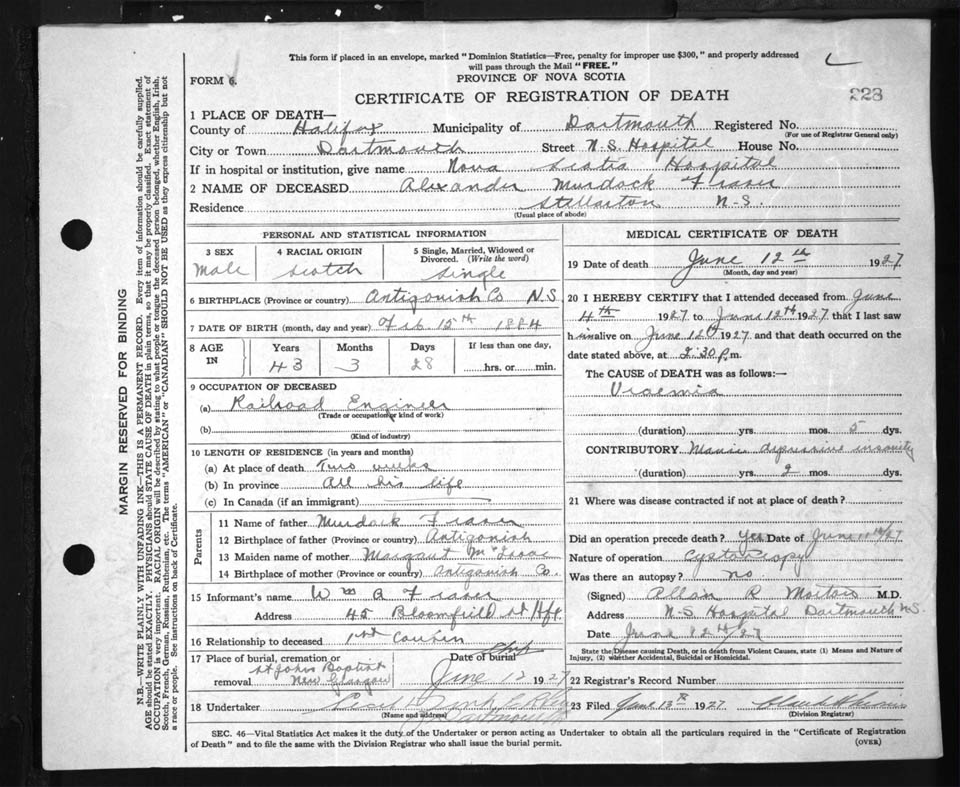 This form if placed in an envelope, marked "Dominion Statistics—Free, penalty for improper use $300," and properly addressed
will pass through the Mail "FREE."
FORM 6.
PROVINCE OF NOVA SCOTIA
CERTIFICATE OF REGISTRATION OF DEATH
228
1 PLACE OF DEATH—
County of Halifax Municipality of Dartmouth Registered No.
(For use of Registrar General only)
City or Town Dartmouth Street N.S. Hospital House No.
If in hospital or institution, give name Nova Scotia Hospital
2 NAME OF DECEASED Alexander Murdock Fraser
Residence Stellarton N-S.
(Usual place of abode)
PERSONAL AND STATISTICAL INFORMATION
3 SEX 4 RACIAL ORIGIN 5 Single, Married, Widowed or
Divorced. (Write the word)
Male Scotch Single
6 BIRTHPLACE (Province or country) Antigonish Co N.S
7 DATE OF BIRTH (month, day and year) Feb. 15th 1884
8 AGE IN Years Months Days If less than one day,
43 3 28 hrs. or min.
9 OCCUPATION OF DECEASED
(a) Railroad Engineer
(Trade or occupation or kind of work)
(b)
(Kind of industry)
10 LENGTH OF RESIDENCE (in years and months)
(a) At place of death Two weeks
(b) In province All his life
(c) In Canada (if an immigrant)
Parents
11 Name of father Murdock Fraser
12 Birthplace of father (Province or country) Antigonish
13 Maiden name of mother Margaret McIsaac
14 Birthplace of mother (Province or country) Antigonish Co.
15 Informant's name Wm R Fraser
Address 45 Bloomfield St Hfx
16 Relationship to deceased 1st Cousin
17 Place of burial, cremation or removal St Johns Baptist New Glasgow
Date of burial June 12 1927
18 Undertaker
(Name and address)
Dartmouth
MEDICAL CERTIFICATE OF DEATH
19 Date of death June 12th 1927
(Month, day and year)
20 I HEREBY CERTIFY that I attended deceased from June
4th 1927 to June 12th 1927 that I last saw
him alive on June 12th 1927 and that death occurred on the
date stated above, at 2:30 P.m.
The CAUSE of DEATH was as follows:—
Uraemia
(duration) yrs. mos. 5 dys.
CONTRIBUTORY Manic depressive insanity
(duration) yrs. 2 mos. dys.
21 Where was disease contracted if not at place of death?
Did an operation precede death? Yes Date of June 11th/27
Nature of operation Cystoscopy
Was there an autopsy? no
(Signed) Allan R Morton M.D.
Address N-S Hospital Dartmouth N.S.
Date June 12th/27
State the Disease causing Death, or in death from Violent Causes, state (1) Means and Nature of
Injury, (2) whether Accidental, Suicidal or Homicidal.
22 Registrar's Record Number
23 Filed June 13th 1927
(Division Registrar)
SEC. 46—Vital Statistics Act makes it the duty of the Undertaker or person acting as Undertaker to obtain all the particulars required in the "Certificate of Registration
of Death" and to file the same with the Division Registrar who shall issue the burial permit.
(OVER)
MARGIN RESERVED FOR BINDING
N.B.—WRITE PLAINLY WITH UNFADING INK—THIS IS A PERMANENT RECORD. Every item of information should be carefully supplied.
AGE should be stated EXACTLY. PHYSICIANS should STATE CAUSE OF DEATH in plain terms, so that it may be properly classified. Exact statement of
OCCUPATION is very important. RACIAL ORIGIN will be described by stating to what people or tongue the deceased person belonged, whether English, Irish,
Scotch, French, German, Russian, Ruthenian, etc. The terms "AMERICAN" or "CANADIAN" SHOULD NOT BE USED as they express citizenship but not
a race or people. See instructions on back of Certificate.